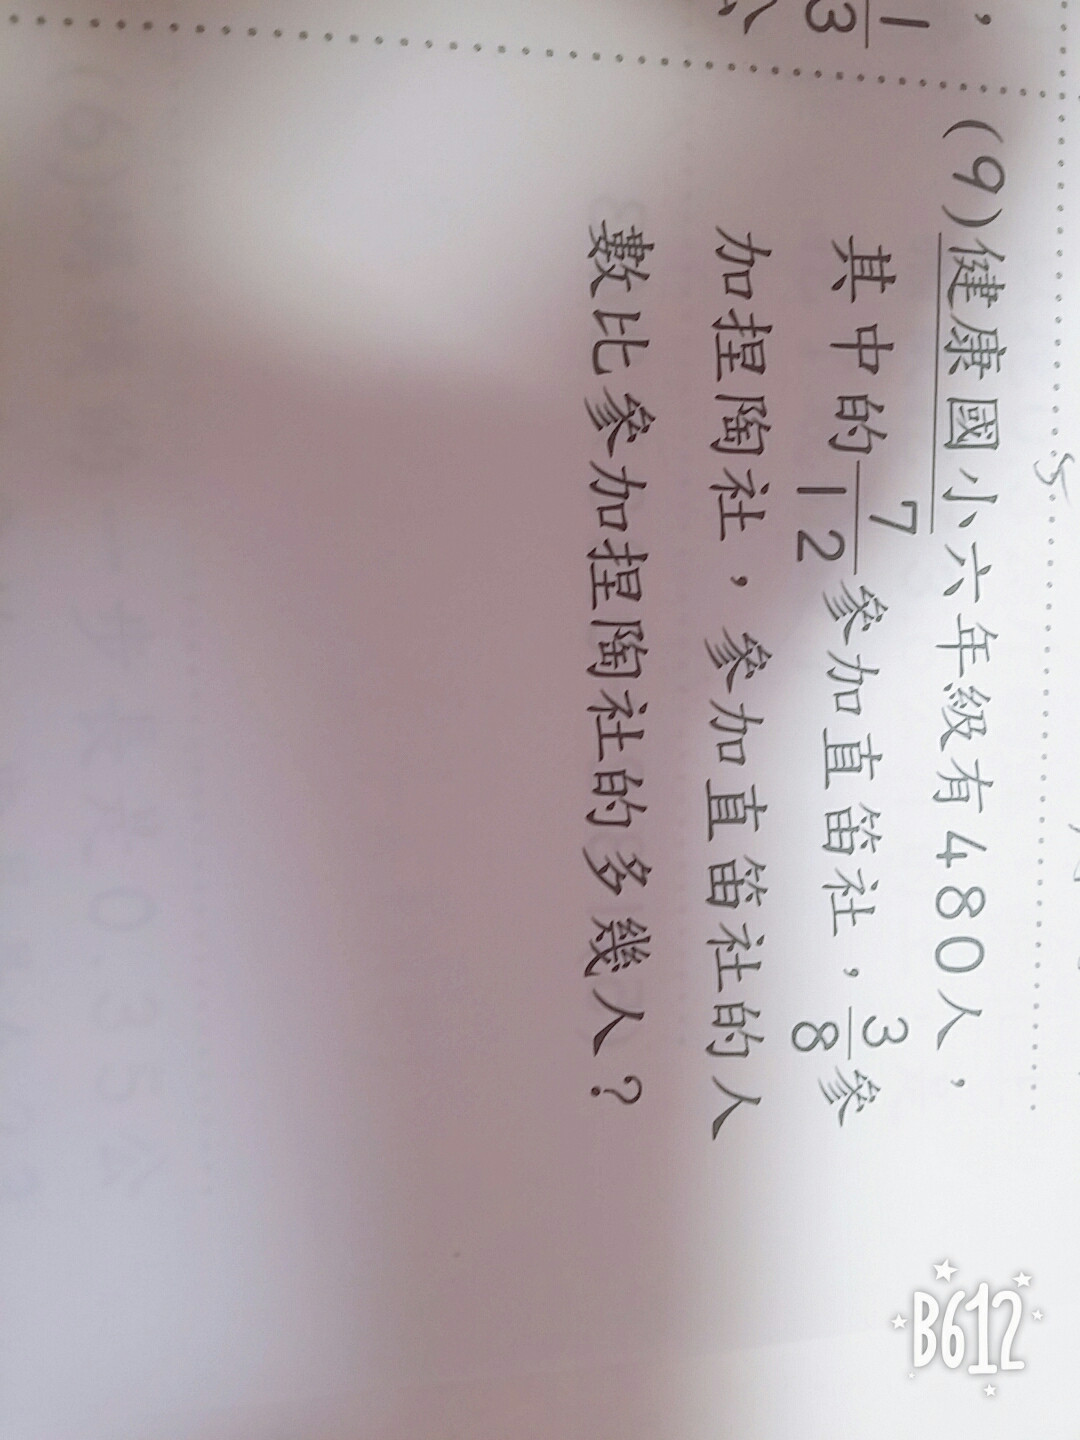 (9)健康國小六年級有480人，
其中的7/12參加直笛社，3/8參
加捏陶社，參加直笛社的人
數比參加捏陶社的多幾人？
B612